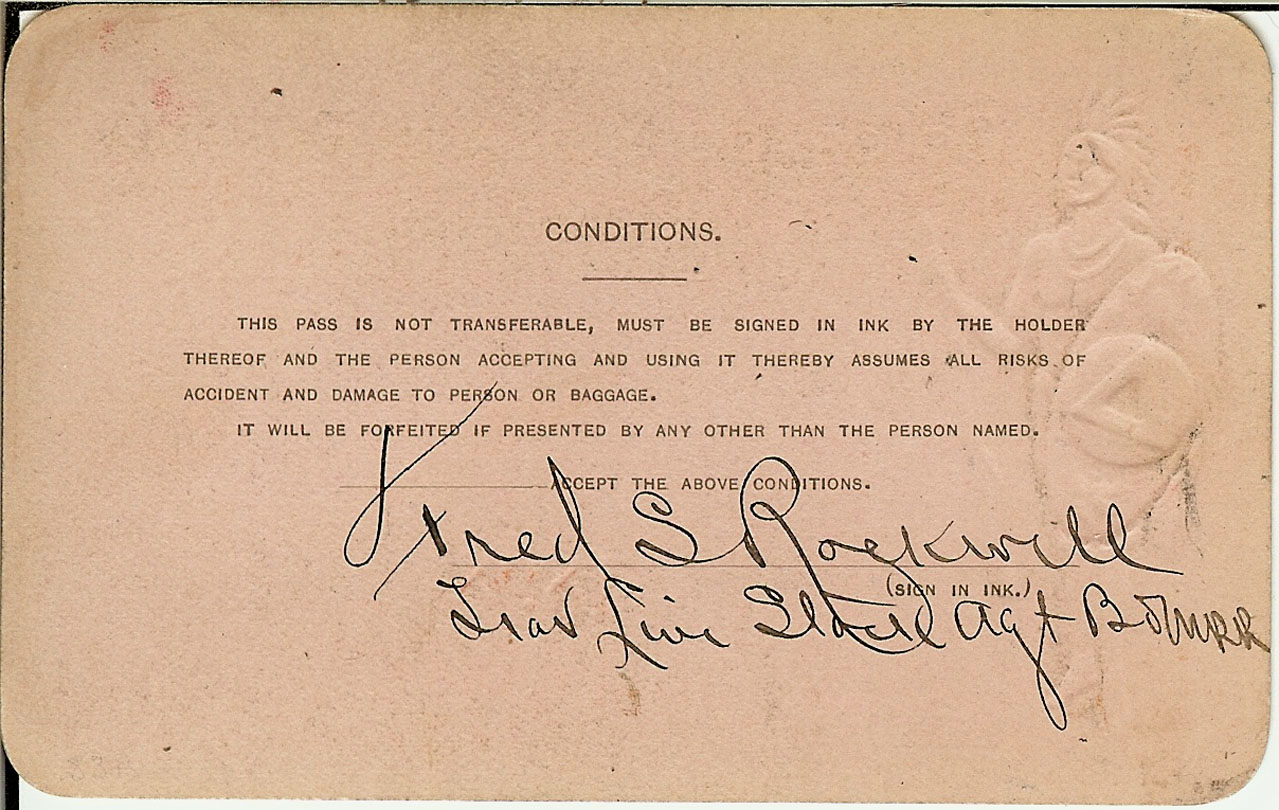 CONDITIONS.
THIS PASS IS NOT TRANSFERABLE, MUST BE SIGNED IN INK BY THE HOLDER
THEREOF AND THE PERSON ACCEPTING AND USING IT THEREBY ASSUMES ALL RISKS OF
ACCIDENT AND DAMAGE TO PERSON OR BAGGAGE.
IT WILL BE FORFEITED IF PRESENTED BY ANY OTHER THAN THE PERSON NAMED.
ACCEPT THE ABOVE CONDITIONS.
Fred S Rockwell
(SIGN IN INK.)
Trav Live Stock Agt